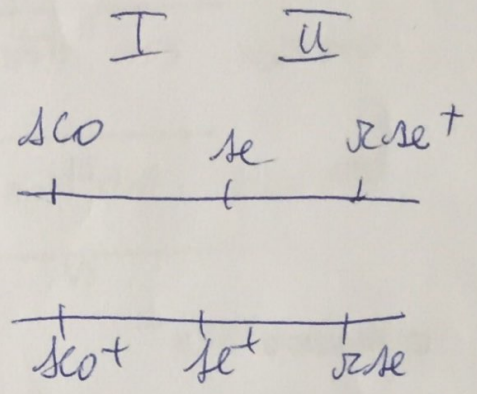 I II
sco se rse+
sco+ se+ rse